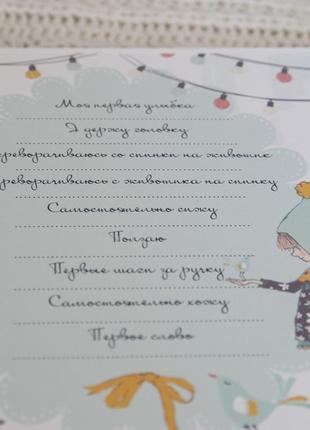 Моя первая улыбка
Я держу головку
реворачиваюсь со спинки на животик
реворачиваюсь с животика на спинку
Самостоятельно сижу
Ползаю
Первые шаги за ручку
Самостоятельно хожу
Первое слово